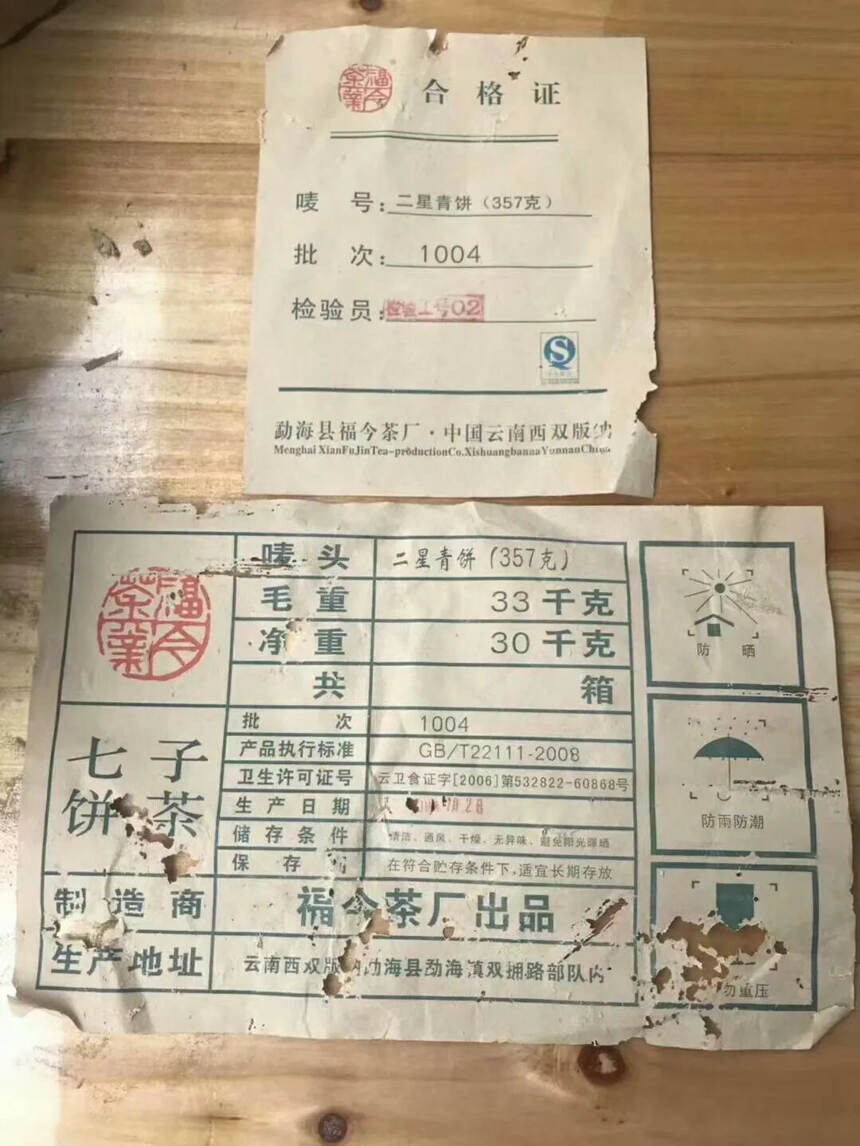 福今茶業
合格证
唛号：二星青饼（357克）
批次：1004
检验员：检验工号02
勐海县福今茶厂·中国云南西双版纳
Menghai XianFuJinTea-productionCo.XishuangbannaYunnanChina
福今茶業
唛头 二星青饼（357克）
毛重 33千克
净重 30千克
共 箱
批次 1004
产品执行标准 GB/T22111-2008
卫生许可证号 云卫食证字[2006]第532822-60868号
生产日期 28
储存条件 清洁、通风、干燥、无异味、避免阳光曝晒
保存 在符合贮存条件下，适宜长期存放
七子
饼茶
制造商 福今茶厂出品
生产地址 云南西双版纳勐海县勐海镇双拥路部队内
防晒
防雨防潮
勿重压